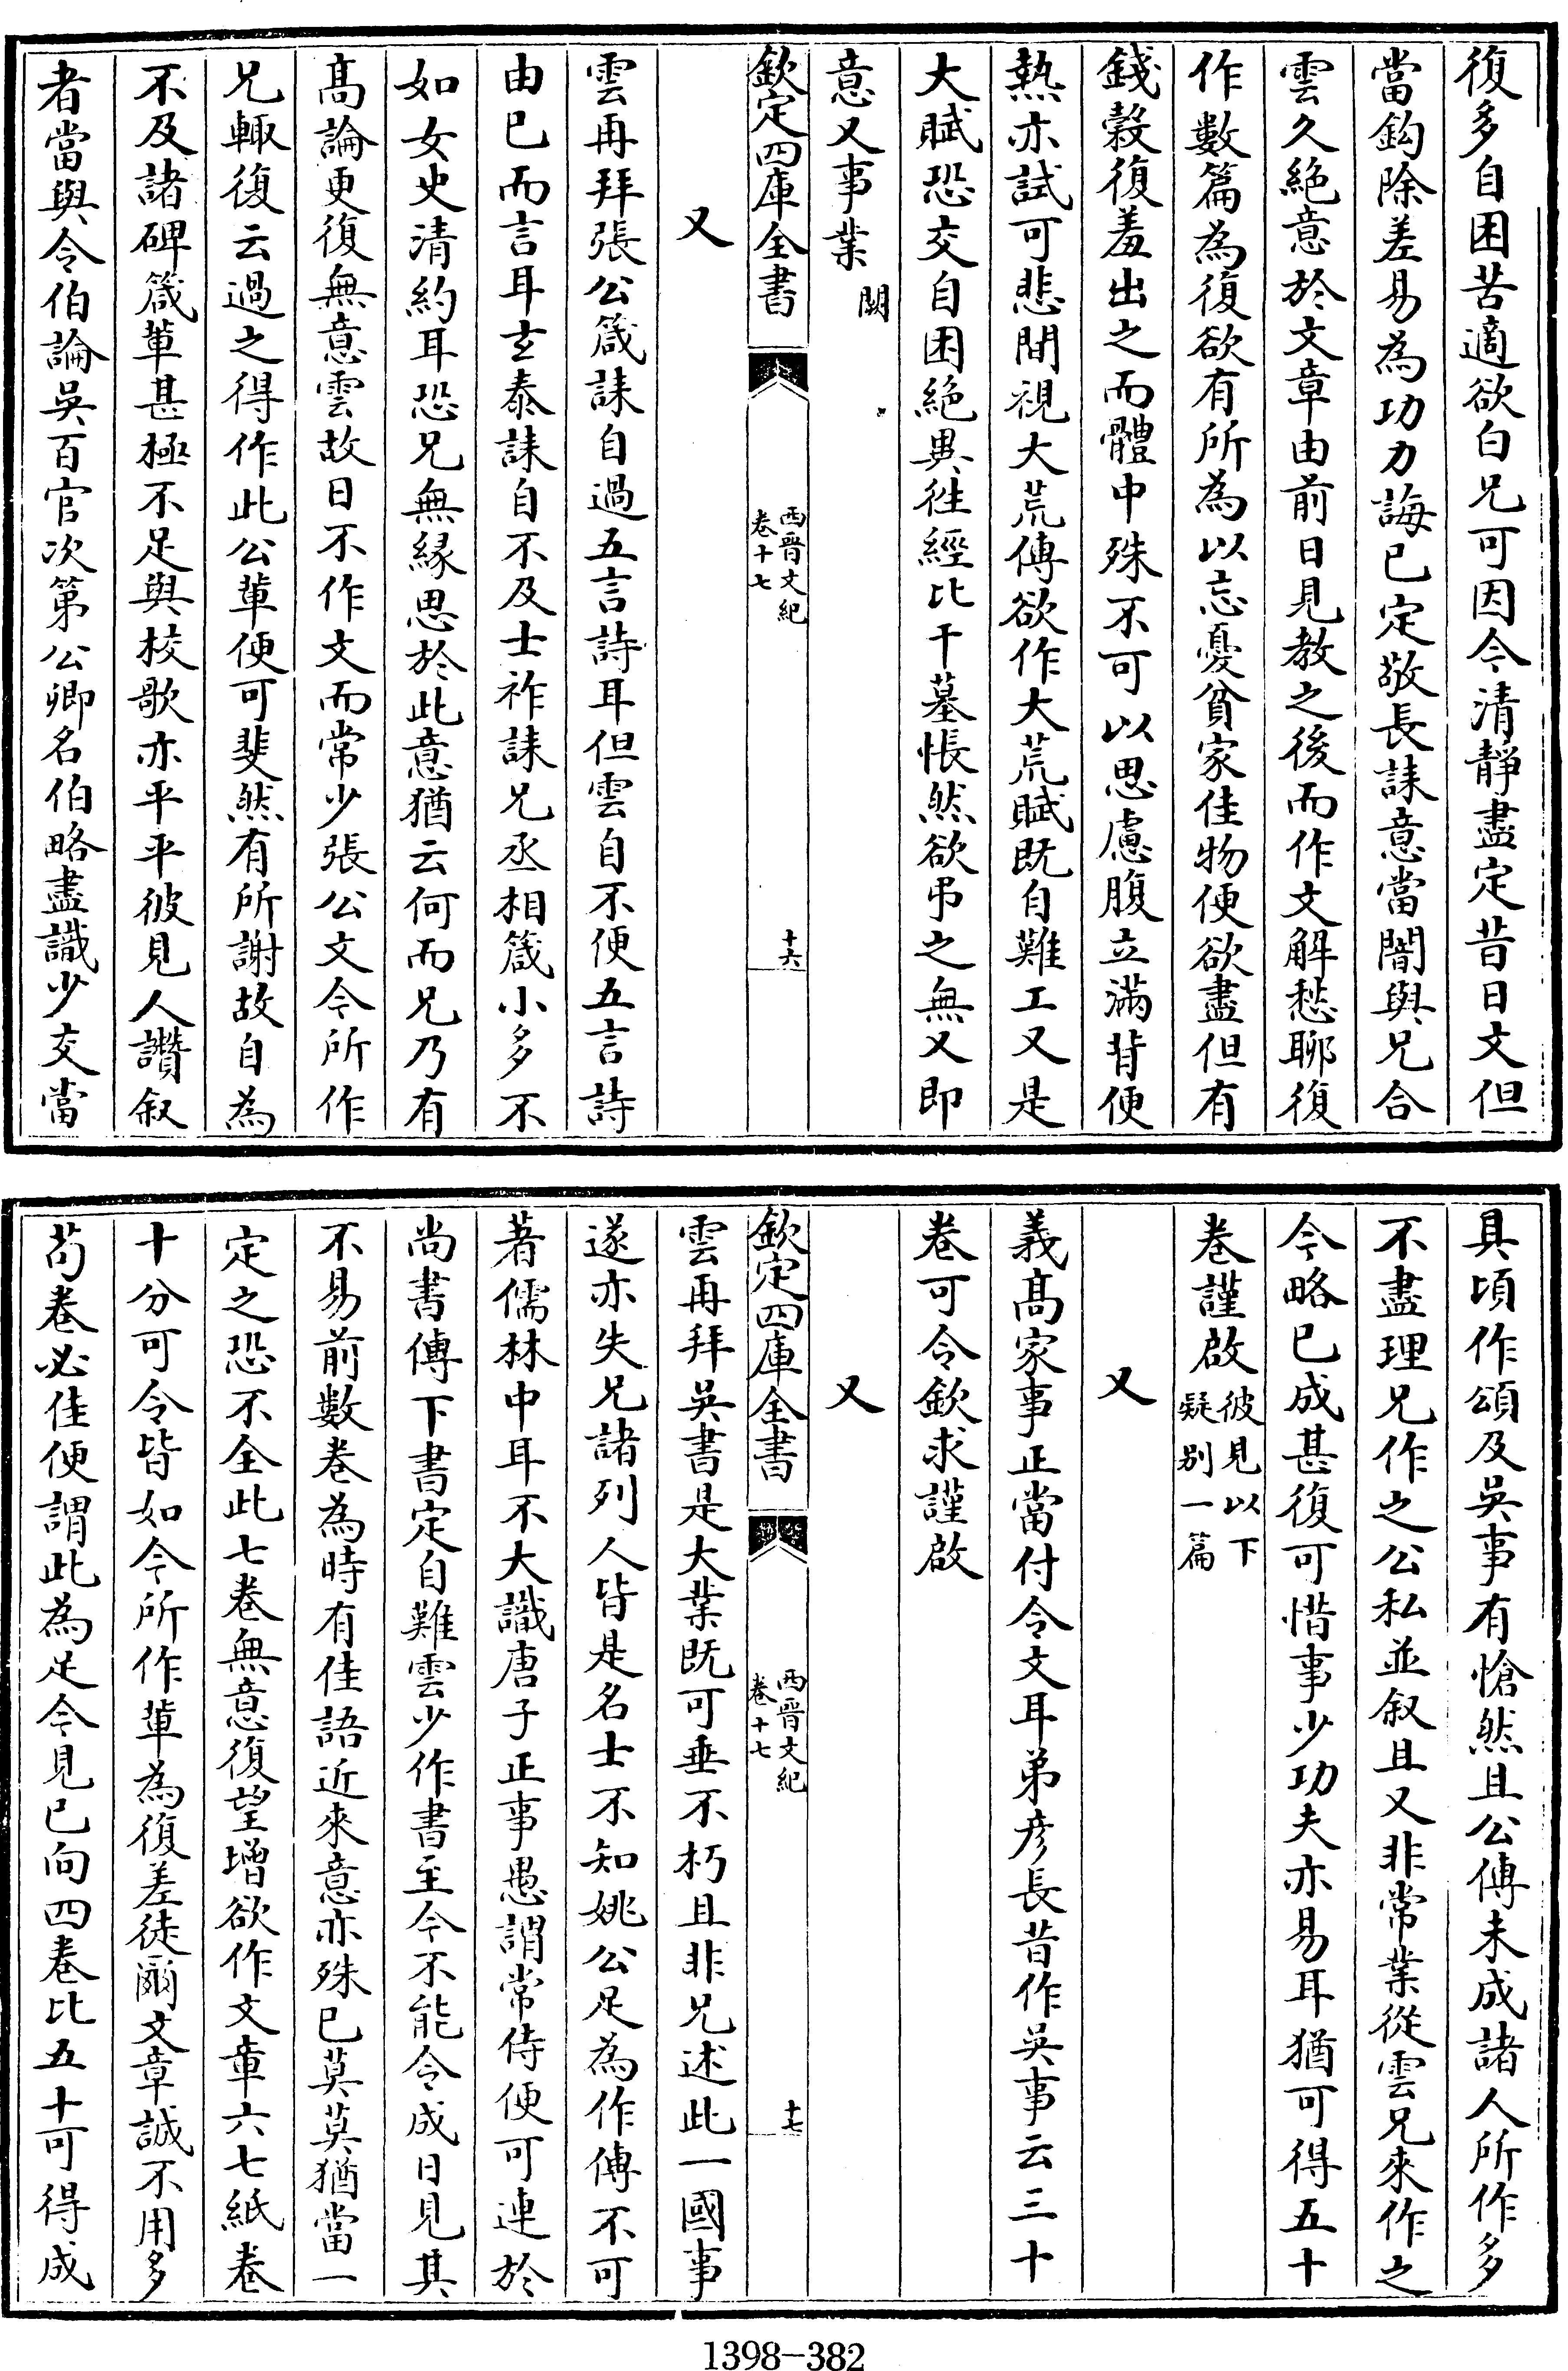 復多自困苦適欲白兄可因今清靜盡定昔日文但
當鈎除差易為功力誨已定敬長誄意當闇與兄合
雲久絶意於文章由前日見教之後而作文解愁聊復
作數篇為復欲有所為以忘憂貧家佳物便欲盡但有
錢穀復羞出之而體中殊不可以思慮腹立滿背便
熱亦試可悲間視大荒傳欲作大荒賦既自難工又是
大賦恐交自困絶異徃經比干墓悵然欲弔之無又即
意又事業闕
欽定四庫全書
西晉文紀
卷十七
十六
又
雲再拜張公箴誄自過五言詩耳但雲自不便五言詩
由已而言耳玄泰誄自不及士祚誄兄丞相箴小多不
如女史清約耳恐兄無緣思於此意猶云何而兄乃有
髙論更復無意雲故日不作文而常少張公文今所作
兄輙復云過之得作此公軰便可斐然有所謝故自為
不及諸碑箴軰甚極不足與校歌亦平平彼見人讚叙
者當與令伯論吳百官次第公卿名伯略盡識少交當
具頃作頌及吳事有愴然且公傳未成諸人所作多
不盡理兄作之公私並叙且又非常業從雲兄來作之
今略已成甚復可惜事少功夫亦易耳猶可得五十
卷謹啟彼見以下
疑别一篇
又
義髙家事正當付令文耳弟彦長昔作吳事云三十
卷可令欽求謹啟
又
欽定四庫全書
西晉文紀
卷十七
十七
雲再拜吳書是大業既可垂不朽且非兄述此一國事
遂亦失兄諸列人皆是名士不知姚公足為作傳不可
著儒林中耳不大識唐子正事愚謂常侍便可連於
尚書傳下書定自難雲少作書至今不能令成日見其
不易前數卷為時有佳語近來意亦殊已莫莫猶當一
定之恐不全此七卷無意復望增欲作文章六七紙卷
十分可令皆如今所作軰為復差徒爾文章誠不用多
苟卷必佳便謂此為足今見已向四卷比五十可得成
1398-382